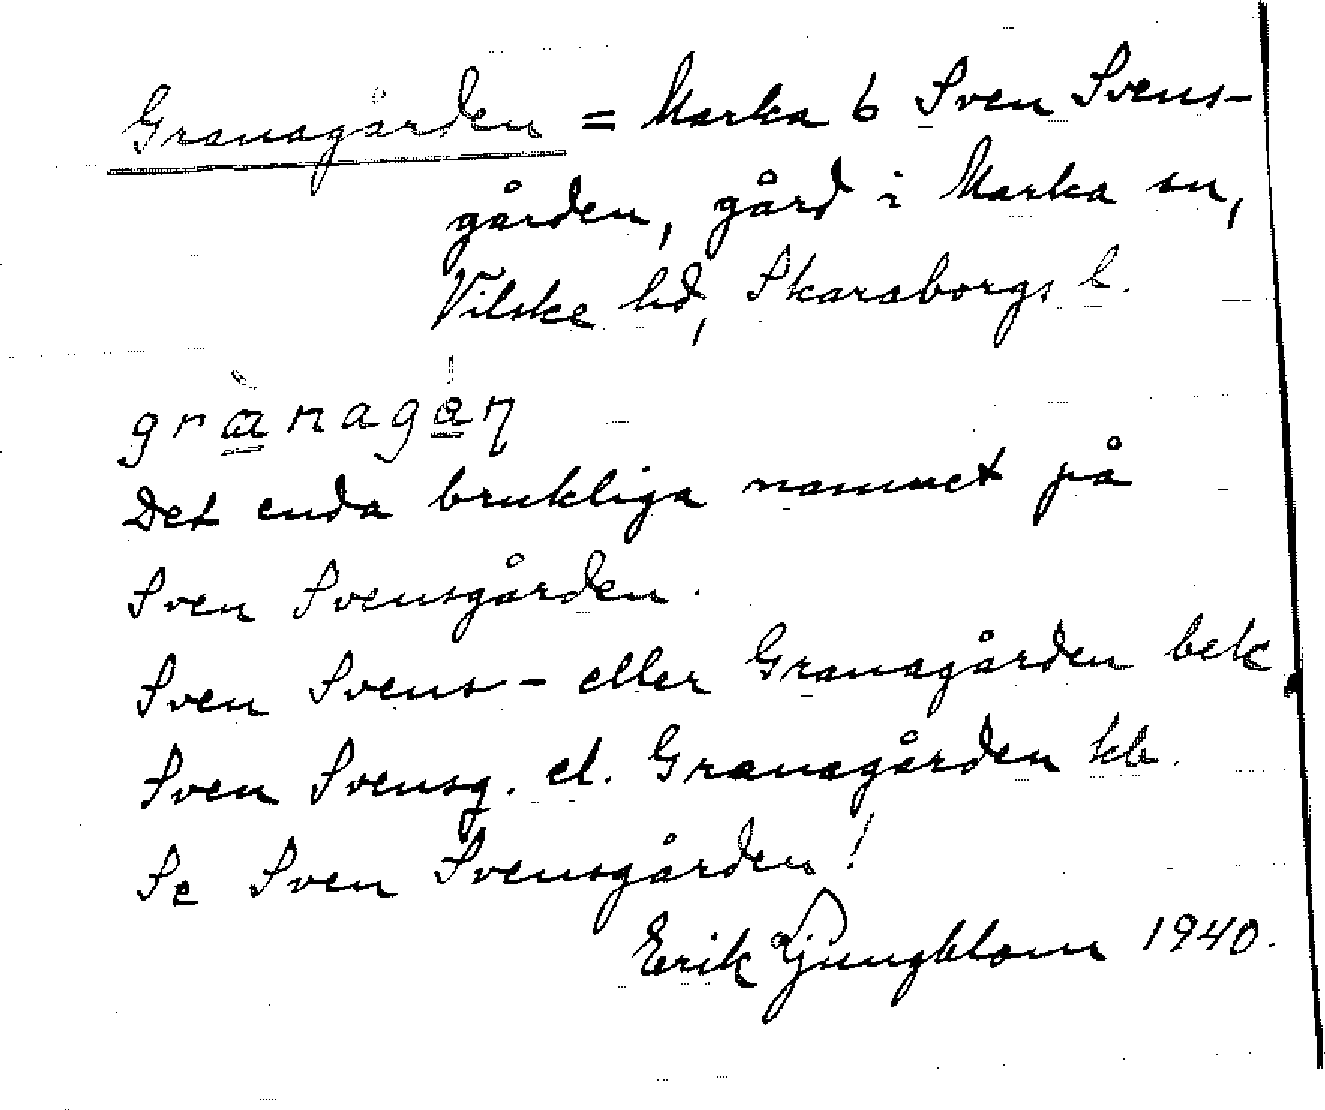 Granagården = Marka 6 Sven Svens-
gården, gård i Marka sn,
Vilske hd, Skaraborgs l.
grànagán
Det enda brukliga namnet på
Sven Svensgården.
Sven Svens- eller Granagården bek
Sven Svensg. el. Granagården kb.
Se Sven Svensgården!
Erik Ljungblom 1940.